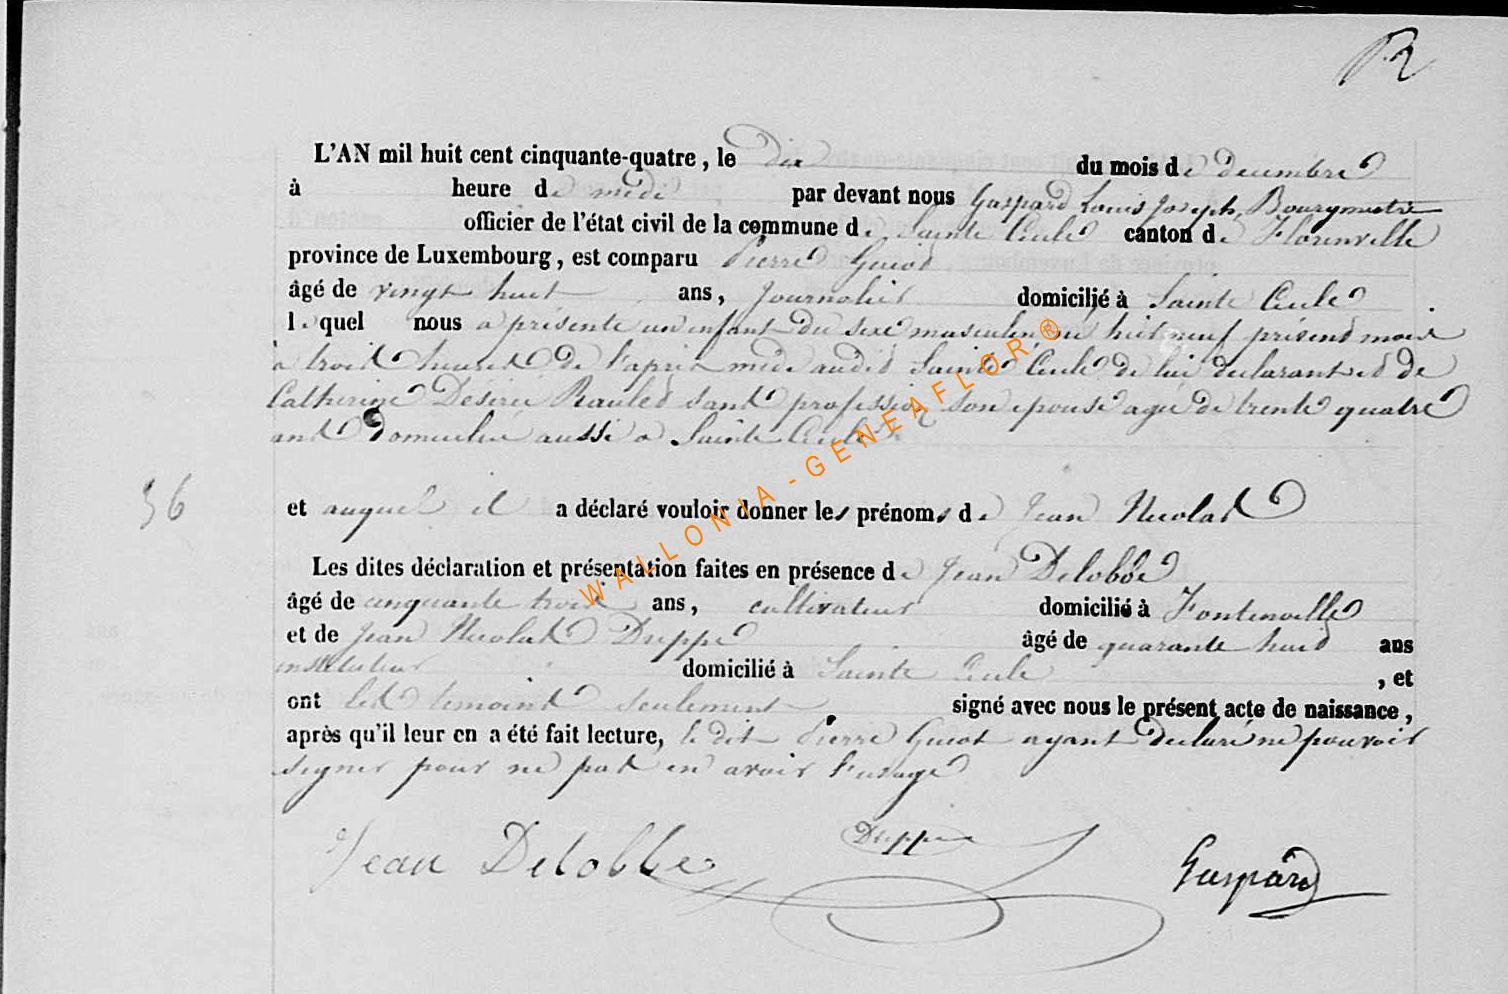 R
L'AN mil huit cent cinquante-quatre, le dix du mois de decembre
à heure de midi par devant nous Gaspard Louis Joseph, Bourgmestre
officier de l'état civil de la commune de Sainte Cecile canton de Florenville
province de Luxembourg, est comparu Pierre Guiot
âgé de vingt huit ans, Journalier domicilié à Sainte Cecile
lequel nous a présenté un enfant du sexe masculin, né neuf présent mois
à trois heures de l'après midi audit Sainte Cecile de lui declarant et de
Catherine Désirée Raulet sans profession son epouse agée de trente quatre
ans domiciliée aussi a Sainte Cecile.
56
et auquel il a déclaré vouloir donner les prénoms de Jean Nicolas
Les dites déclaration et présentation faites en présence de Jean Delobbe
âgé de cinquante trois ans, cultivateur domicilié à Fontenoille
et de Jean Nicolas Dreppe âgé de quarante huit ans
instituteur domicilié à Sainte Cecile , et
ont les temoins seulement signé avec nous le présent acte de naissance,
après qu'il leur en a été fait lecture, le dit Pierre Guiot ayant declaré ne pouvoir
signer pour ne pas en avoir l'usage
Jean Delobbe Dreppe Gaspard
WALLONIA-GENEAFLOR®